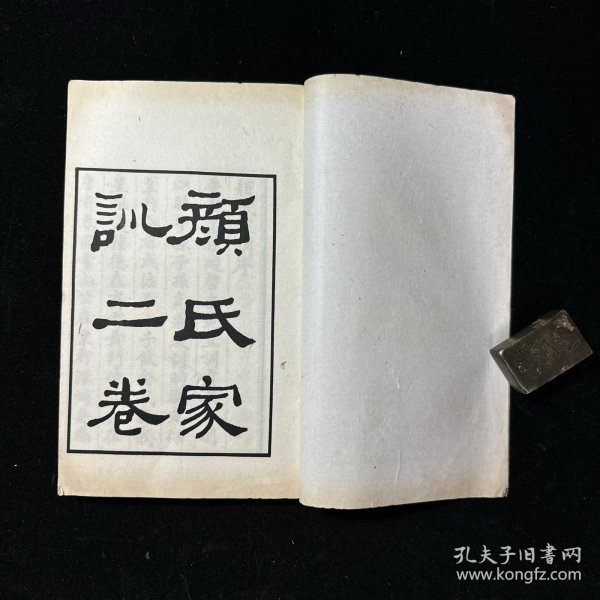 顏氏家
訓二卷
孔夫子旧书网
www.kongfz.com